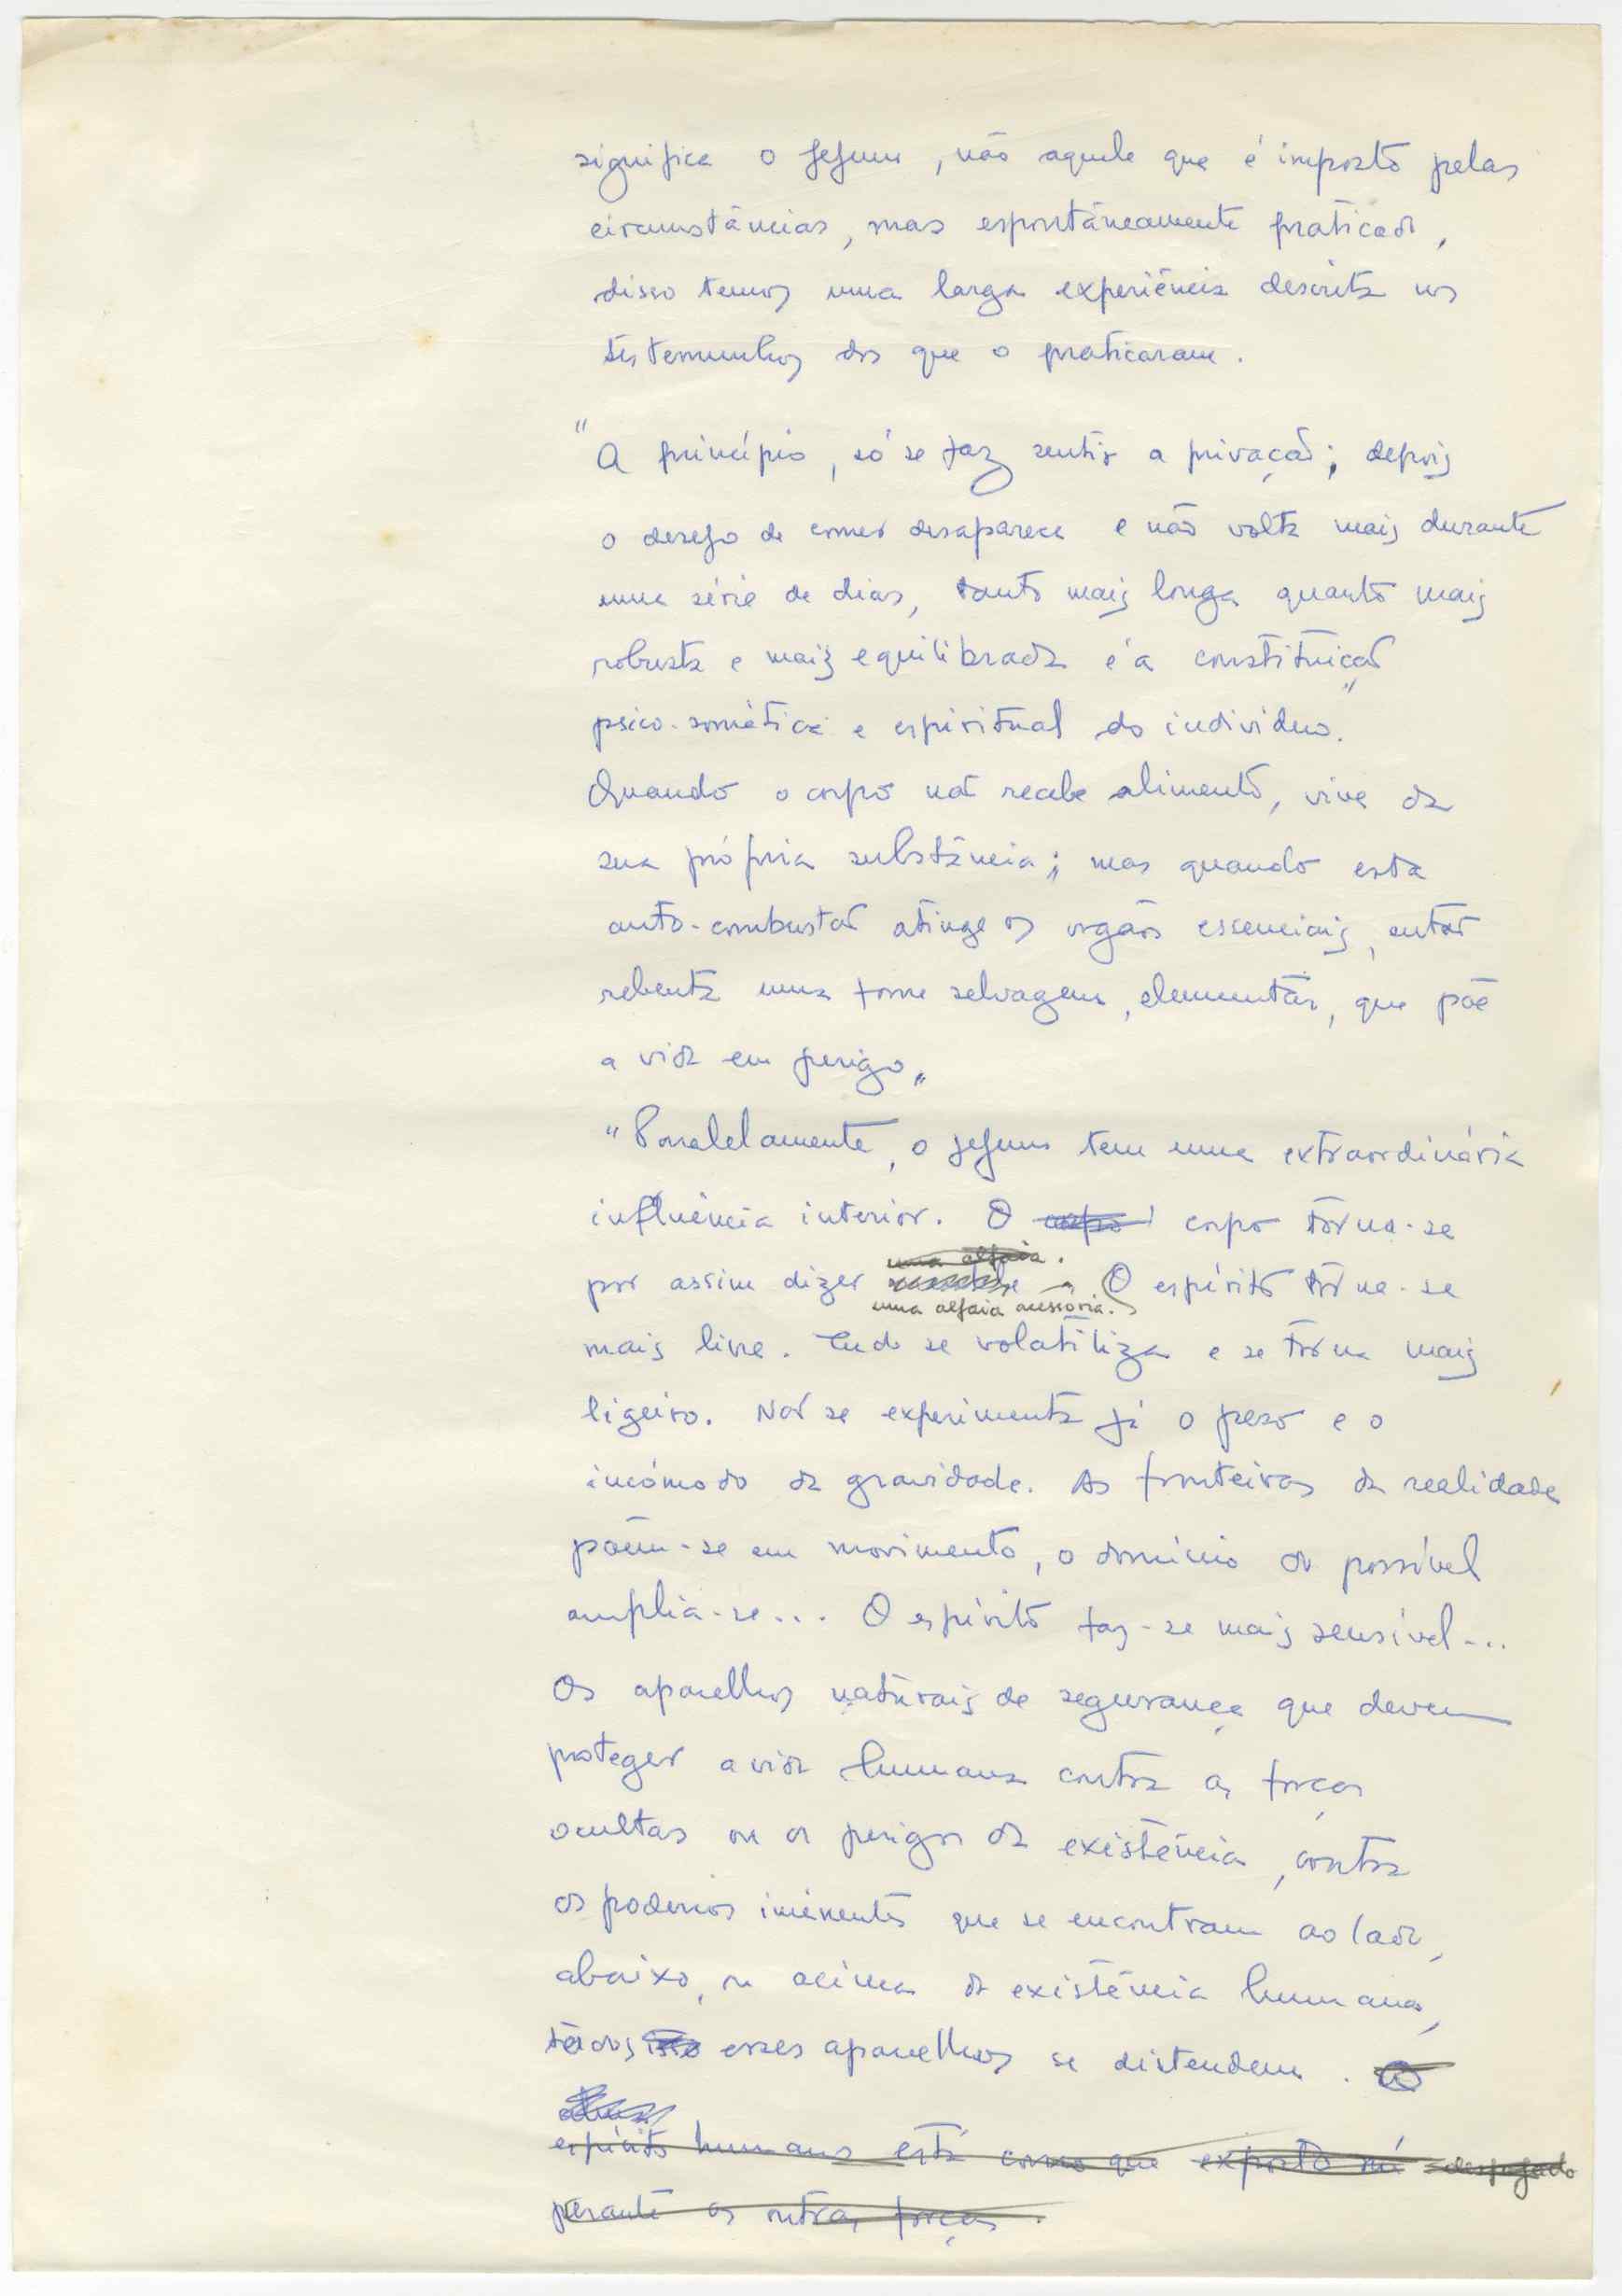 significa o jejum, não aquele que é imposto pelas
circunstâncias, mas espontâneamente praticado,
disso temos uma larga experiência descrita nos
testemunhos dos que o praticaram.
"A princípio, só se faz sentir a privação; depois
o desejo de comer desaparece e não volta mais durante
uma série de dias, tanto mais longa quanto mais
robusta e mais equilibrada é a constituição
psico-somática e espiritual do indivíduo."
Quando o corpo não recebe alimento, vive da
sua própria substância; mas quando esta
auto-combustão atinge os orgãos essenciais, então
rebenta uma fome selvagem, elementar, que põe
a vida em perigo"
"Paralelamente, o jejum tem uma extraordinária
influência interior. O corpo corpo torna-se
uma alfaia.
por assim dizer O espírito torna-se
uma alfaia acessória.
mais livre. Tudo se volatiliza e se torna mais
ligeiro. Não se experimenta já o peso e o
incómodo da gravidade. As fronteiras da realidade
põem-se em movimento, o domínio do possível
amplia-se... O espírito faz-se mais sensível...
Os aparelhos naturais de segurança que devem
proteger a vida humana contra as forças
ocultas ou os perigos da existência, contra
os poderios iminentes que se encontram ao lado,
abaixo, ou acima da existência humana,
todos isso esses aparelhos se distendem. O
espírito humano está como que exposto nú despojado
perante as outras forças.